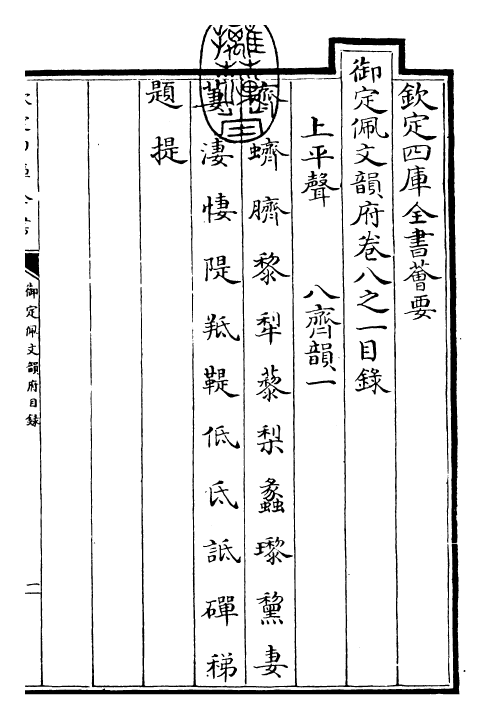 欽定四庫全書薈要
御定佩文韻府卷八之一目錄
上平聲 八齊韻一
齊蠐臍黎犁藜梨蠡瓈黧妻
萋淒悽隄羝鞮低氐詆磾稊
題提
御定佩文韻府目錄
一